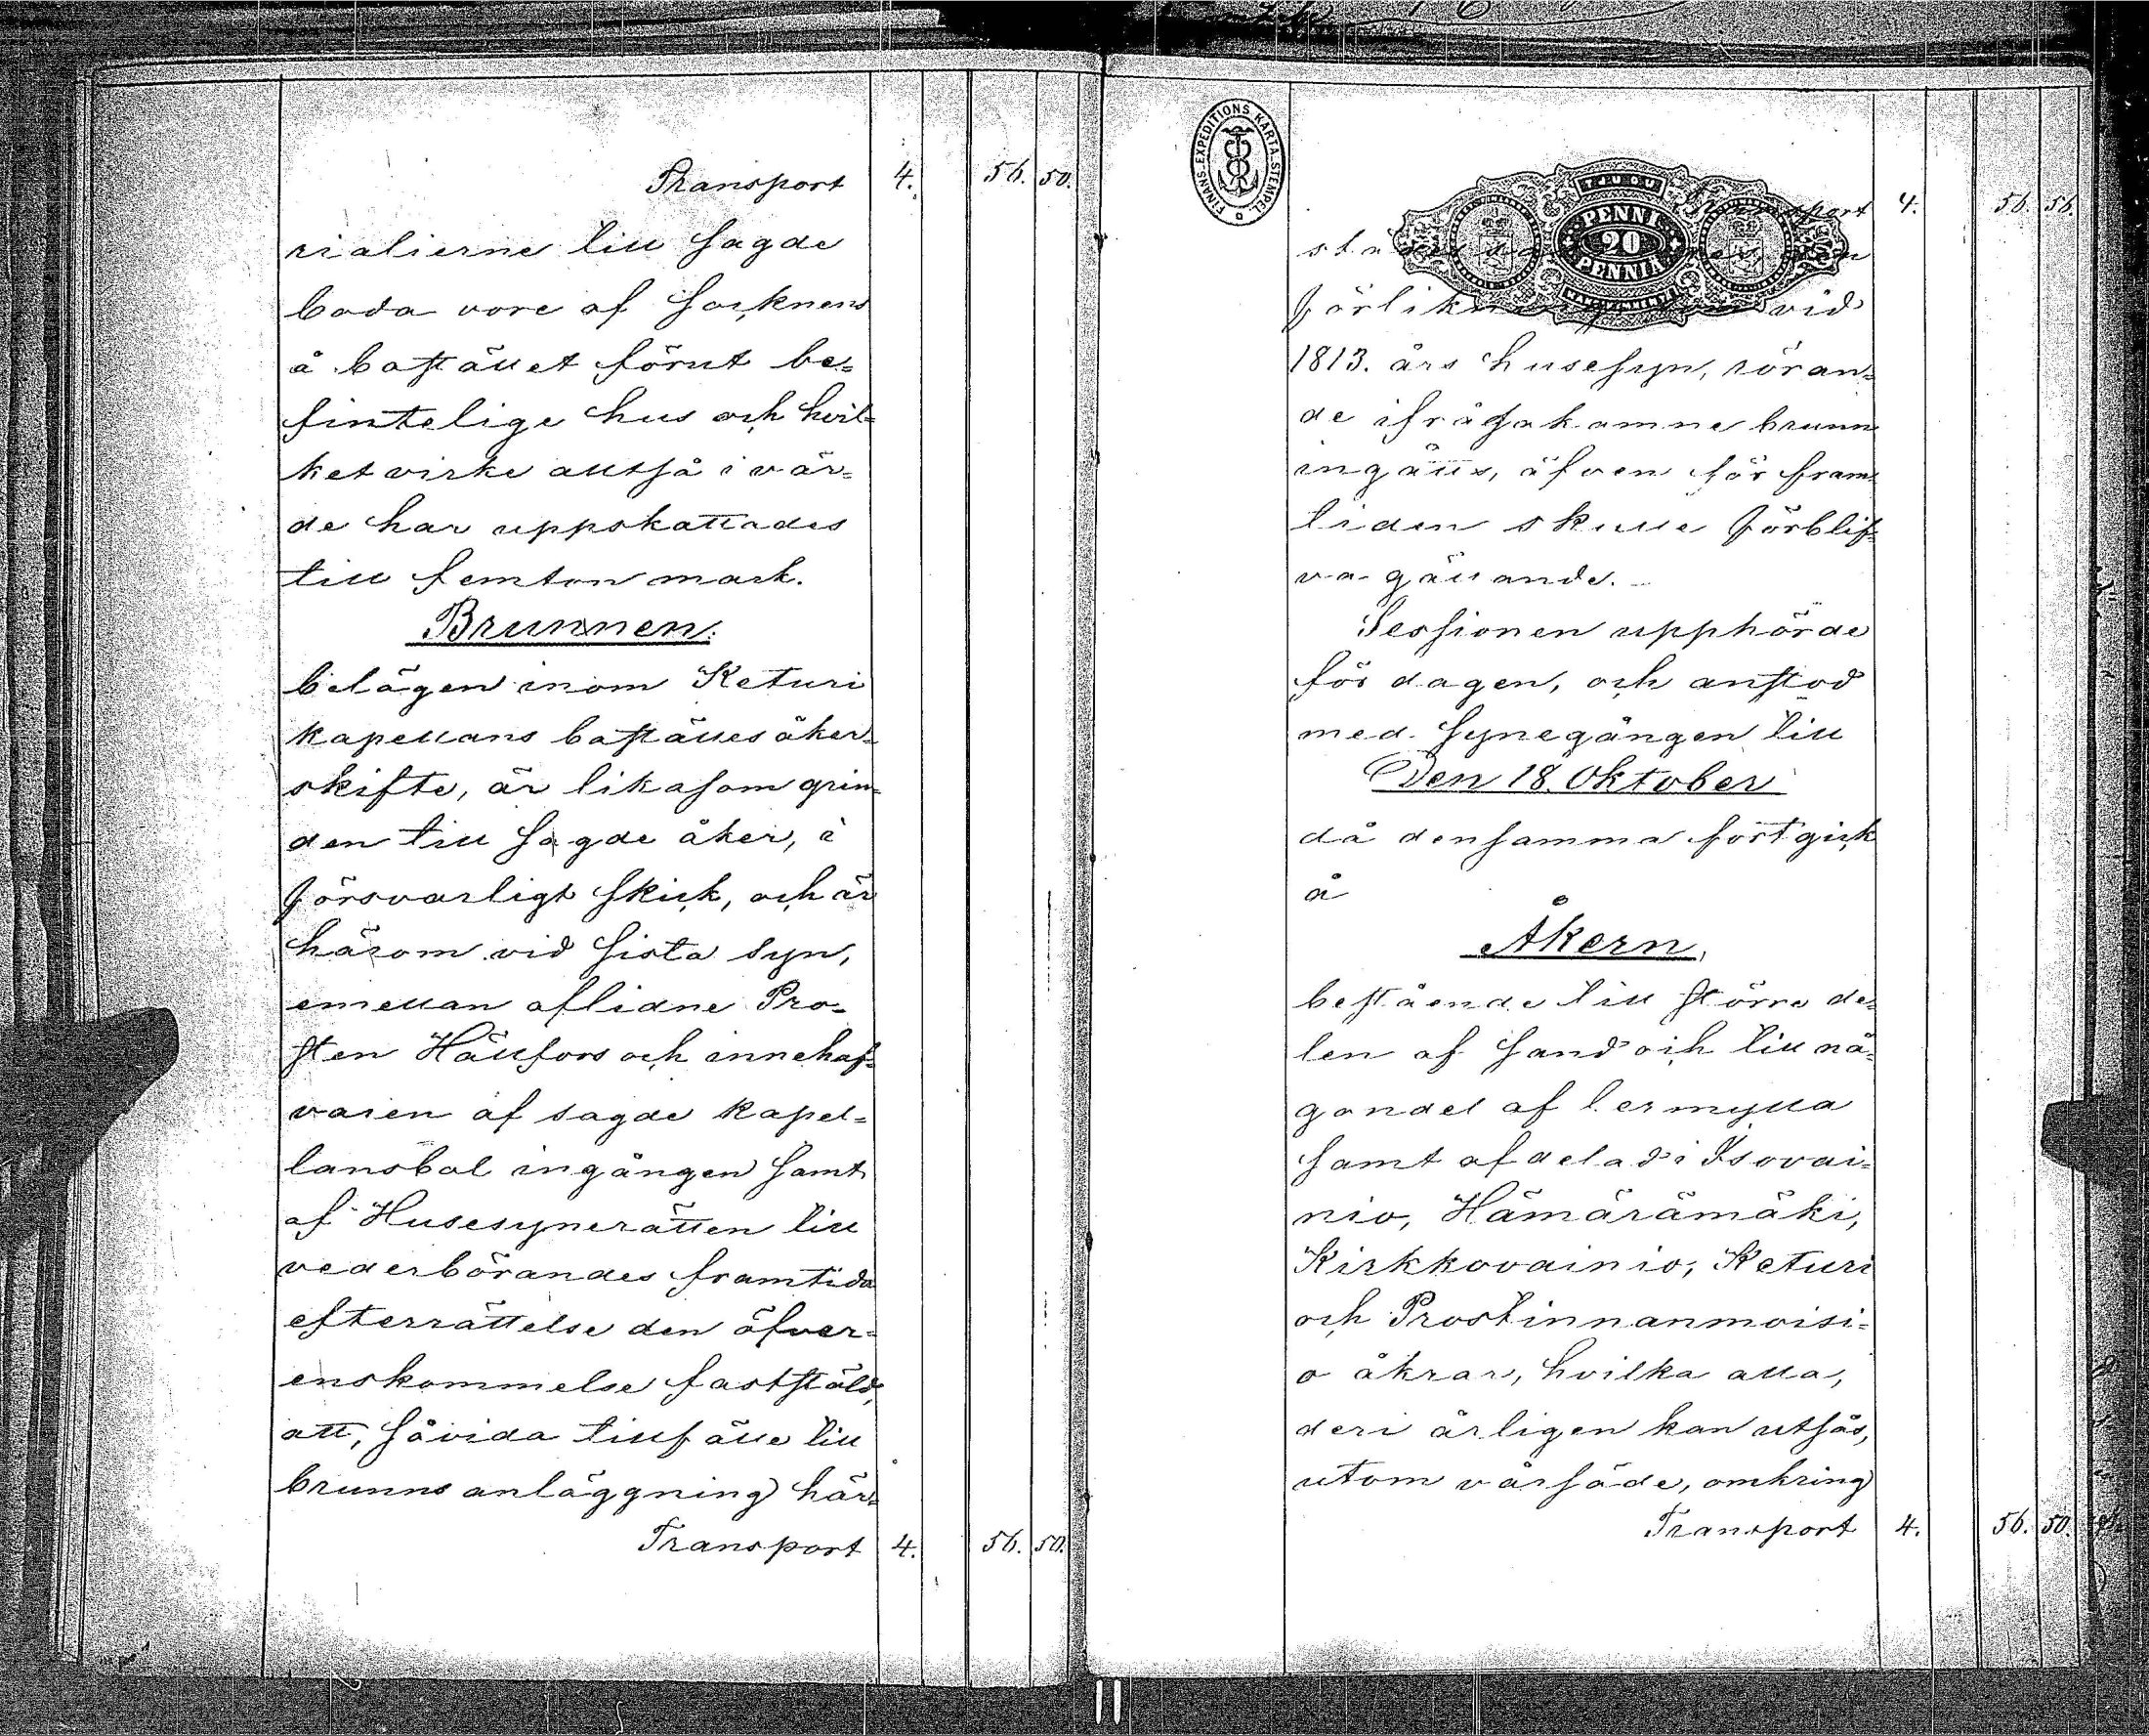 Transport 4. 56. 50.
rialierne till sagde
boda vore af socknens
å bostället förut be=
fintelige hus och hvil=
ket virke alltså i vär=
de har uppskattades
till femton mark.
Brunnen:
belägen inom Keturi
kapellans boställes åker=
skifte, är likasom grin=
den till sagde åker, i
försvarligt skick, och är
härom vid sista syn,
emellan aflidne Pro=
sten Hällfors och innehaf=
varen af sagde kapel=
lansbol ingången samt
af Husesynerätten till
vederbörandes framtida
efterrättelse den öfver=
enskommelse fastställd,
att, såvida tillfälle till
brunns anläggning här=
Transport 4. 56. 50.
FINANS. EXPEDITIONS KARTA. STEMPEL.
TJUGU
PENNI
20
PENNIÄ
KAKSIKYMMENTÄ
Transport 4. 56. 56.
förlikning vid
1813. års husesyn, röran=
de ifrågakomne brunn
ingåtts, äfven för fram=
tiden skulle förblif=
va gällande.
Sessionen upphörde
för dagen, och anstod
med synegången till
Den 18. Oktober
då densamma fortgick
å
Åkern,
bestående till större de=
len af sand och till nå=
gondel af lermylla
samt afdelad i Isovai=
nio, Hämärämäki,
Kirkkovainio, Keturi
och Prostinnanmoisi=
o åkrar, hvilka alla,
deri årligen kan utsås,
utom vårsäde, omkring
Transport 4. 56. 50.